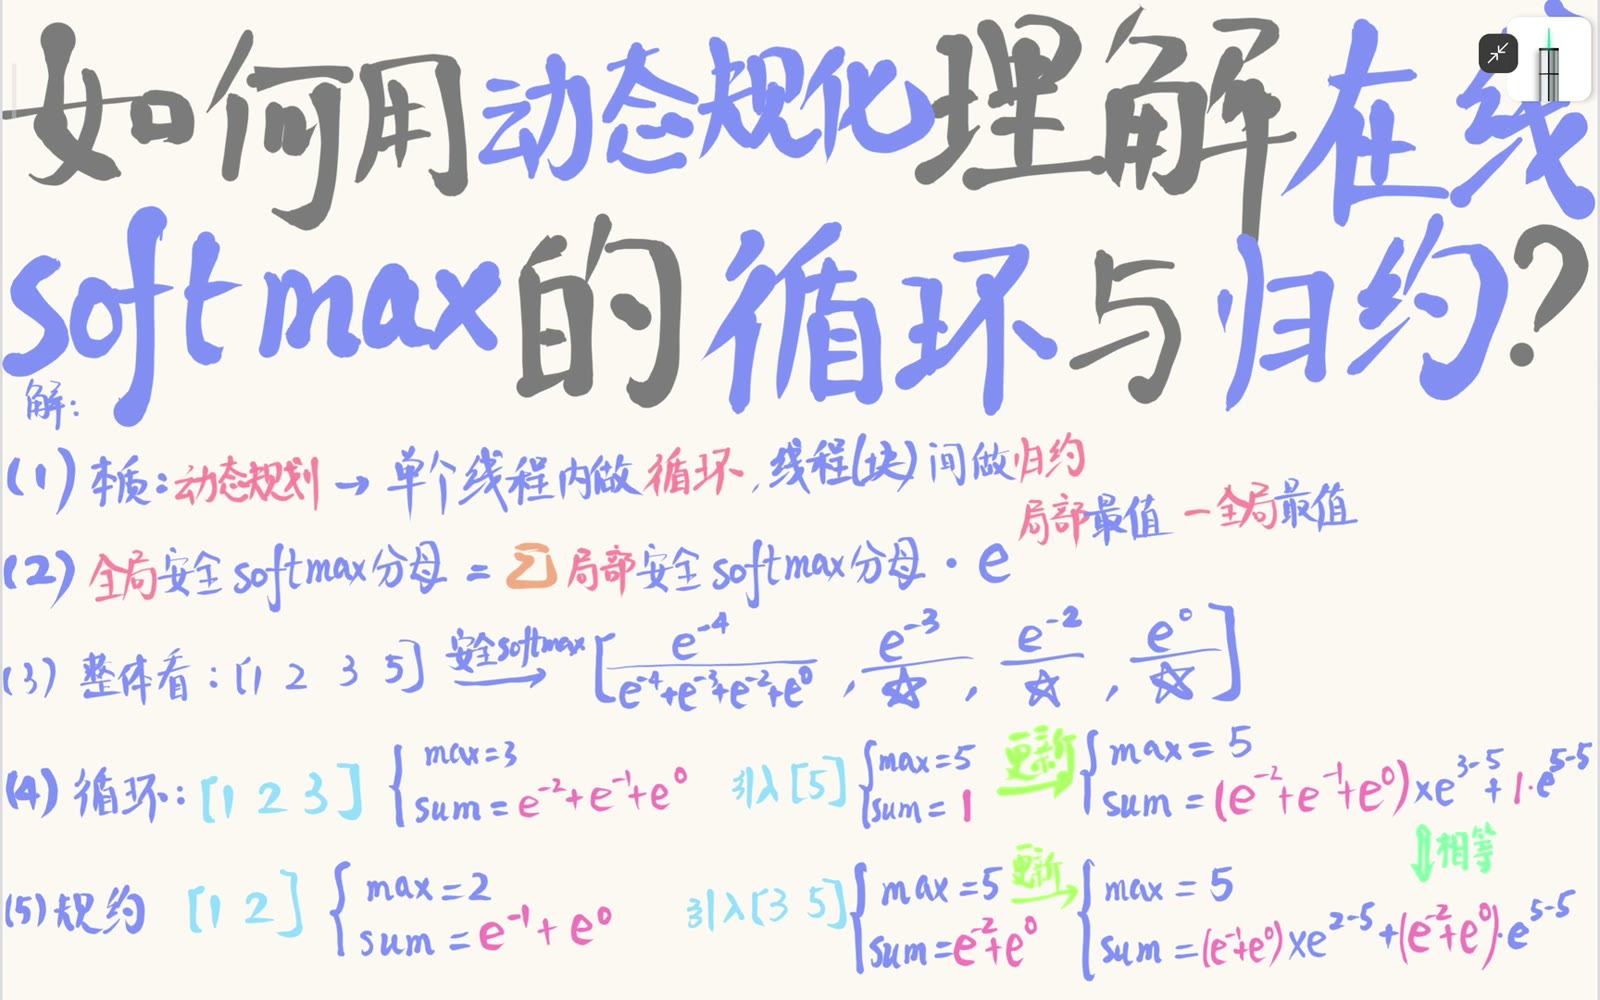 如何用动态规化理解在线
softmax的循环与归约?
解:
(1) 本质:动态规划 → 单个线程内做循环,线程(块)间做归约
(2) 全局安全softmax分母 = Σ 局部安全softmax分母 · e^{局部最值 - 全局最值}
(3) 整体看: [1 2 3 5] 安全softmax→ [e^{-4}/(e^{-4}+e^{-3}+e^{-2}+e^{0}), e^{-3}/☆, e^{-2}/☆, e^{0}/☆]
(4) 循环: [1 2 3] { max=3 sum = e^{-2}+e^{-1}+e^{0} 引入[5] { max=5 sum = 1 更新→ { max = 5 sum = (e^{-2}+e^{-1}+e^{0})×e^{3-5} + 1·e^{5-5}
⇓相等
(5) 规约 [1 2] { max=2 sum = e^{-1}+e^{0} 引入[3 5] { max=5 sum=e^{-2}+e^{0} 更新→ { max = 5 sum = (e^{-1}+e^{0})×e^{2-5}+(e^{-2}+e^{0})·e^{5-5}